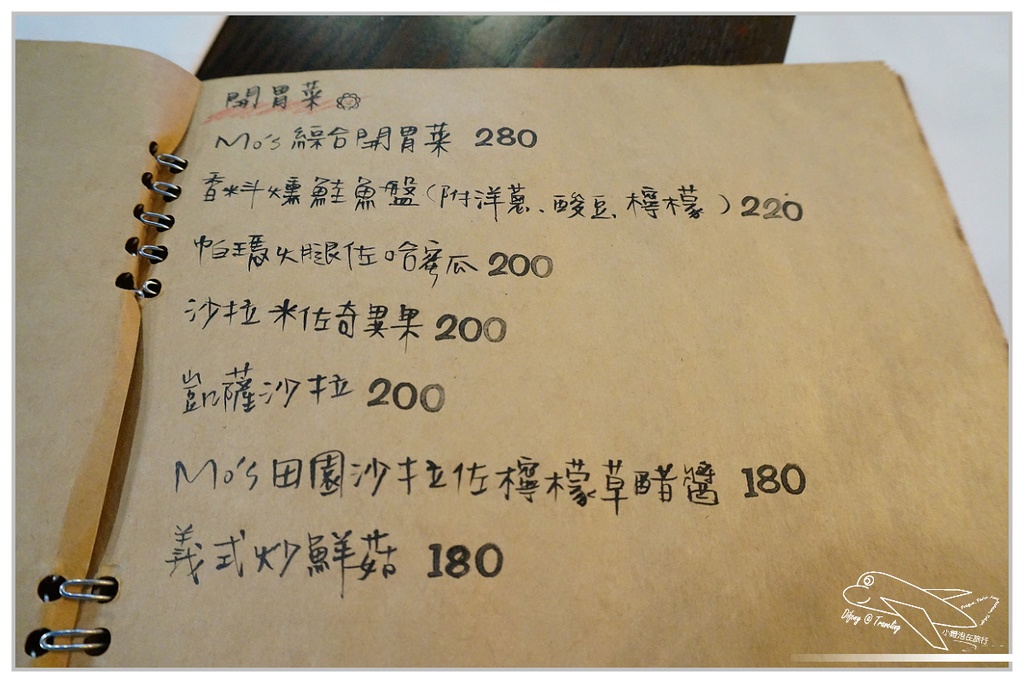 開胃菜
Mo's 綜合開胃菜 280
香料燻鮭魚盤(附洋蔥、酸豆、檸檬)220
帕瑪火腿佐哈密瓜 200
沙拉米佐奇異果 200
凱薩沙拉 200
Mo's田園沙拉佐檸檬草醋醬 180
義式炒鮮菇 180
Difeny @ Traveling
小體泡在旅行